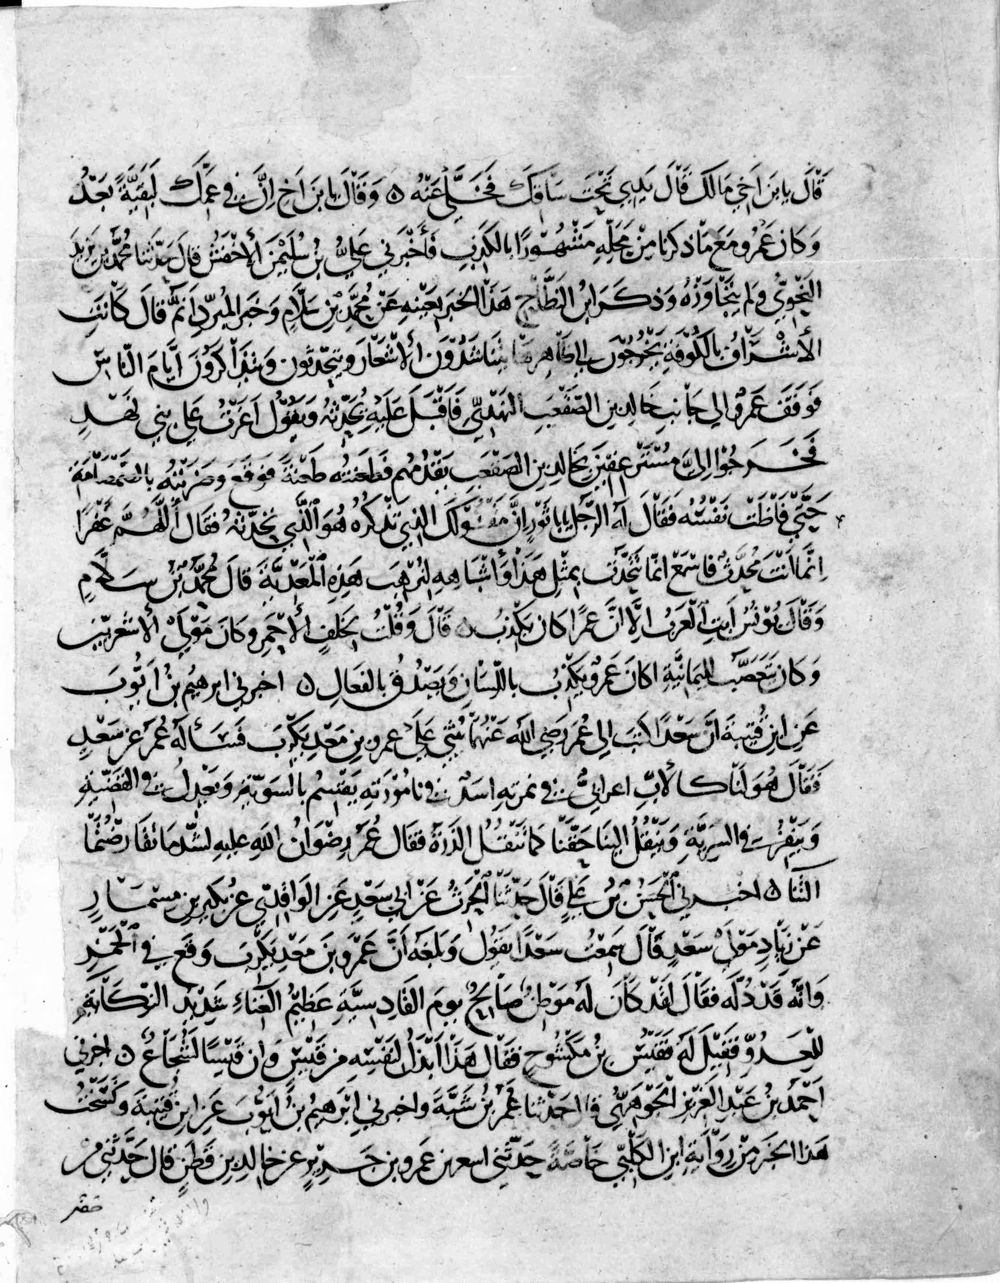 قَالَ يا بنَ اَخي مَا لَكَ قَالَ يَدِي تَحْتَ سَاقِكَ فَخَلَّى عَنْهُ ۞ وَقَالَ يا بنَ اَخِي اِنَّ في عَمِّكَ لَبَقِيَّةً بَعْدُ
وَكَانَ عَمْرٌو مَعَ مَا ذكرنا مِنْ مَحَلِّهِ مَشْهُورًا بِالكَذِبِ فَأَخْبَرَني عَلِيُّ بنُ سُلَيْمَنَ الأَخْفَشُ قالَ حَدَّثَنا مُحَمَّدُ بن يَزيدَ
النَّحْوِيُّ ولم يَتَجَاوَزْهُ وَذَكَرَ ابنُ النَّطَّاحِ هَذَا الخَبَرَ بِعَيْنِهِ عَنْ مُحَمَّدِ بنِ سَلَّامٍ وَخَبَرُ المُبَرِّدِ اَتَمُّ قَالَ كَانَتِ
الأَشْرَافُ بِالكُوفَةِ يَخْرُجُونَ اِلى ظَاهِرِهَا يَتَنَاشَدُونَ الأشْعَارَ وَيَتَحَدَّثُونَ وَيَتَذَاكَرُونَ اَيَّامَ النَّاسِ
فَوَقَفَ عَمْرٌو اِلى جَانِبِ خَالِدِ بنِ الصَّقْعَبِ النَّهْدِيِّ فَاَقْبَلَ عَلَيْهِ يُحَدِّثُهُ وَيَقُولُ اَغَرْتُ عَلَى بَنِي نَهْدٍ
فَخَرَجُوا اِلَيَّ مُسْتَرْعِفِينَ بِخَالِدِ بنِ الصَّقْعَبِ يَقْدُمُهُمْ فَطَعَنْتُهُ طَعْنَةً فَوَقَعَ وَضَرَبْتُهُ بالصَّمْصَامَةِ
حَتَّى فَاظَتْ نَفْسُهُ فَقَالَ لَهُ الرَّجُلُ يا بَا ثَوْرٍ اِنَّ مَقْتُولَكَ الذي تَذْكُرُهُ هُوَ الَّذِي تُحَدِّثُهُ فَقَالَ اَللَّهُمَّ غَفْرًا
اِنَّمَا اَنْتَ مُحَدَّثٌ فَاسْمَعْ اِنَّمَا نَتَحَدَّثُ بِمِثْلِ هَذَا وَأَشْبَاهِهِ لِنُرْهِبَ هَذِهِ المَعَدِّيَّةَ قَالَ مُحَمَّدُ بنُ سَلَّامٍ
وَقَالَ يُونُسُ اَبَتِ العَرَبُ اِلَّا اَنَّ عَمْرًا كَانَ يَكْذِبُ ۞ قَالَ وَقُلْتُ لِخَلَفٍ الأَحْمَرِ وَكَانَ مَوْلَى الأشْعَرِيِّينَ
وَكَانَ يَتَعَصَّبُ لِليَمَانِيَّةِ اَكَانَ عَمْرٌو يَكْذِبُ قال كان يكذب بِاللِّسَانِ وَيَصْدُقُ بِالفَعَالِ ۞ اخبرني ابرهيمُ بنُ اَيُّوبَ
عَنِ ابنِ قُتَيْبَةَ اَنَّ سَعْدًا كَتَبَ اِلى عُمَرَ رَضِيَ اللهُ عَنْهُمَا يُثْنِي عَلَى عمرِو بنِ مَعْدِيكَرِبَ فَسَأَلَهُ عُمَرُ عَنْ سَعْدٍ
فَقَالَ هُوَ لَنَا كَالأَبِ اعرابيٌّ في نَمِرَتِهِ اسدٌ في تَامُورَتِهِ يَقْسِمُ بِالسَّوِيَّةِ وَيَعْدِلُ في القَضِيَّةِ
وَيَنْفِرُ في السَرِيَّةِ وَيَنْقُلُ اِلَيْنَا حَقَّنَا كَمَا تَنْقُلُ الذَرَّةُ فَقَالَ عُمَرُ رِضْوَانُ اللهِ عليهِ لَشَدَّ مَا تَقَارَضْتُمَا
الثَّنَا ۞ اخبرني الحَسَنُ بنُ عَلِيٍّ قَالَ حَدَّثَنَا الحَرِثُ عَنِ ابنِ سَعْدٍ عَنِ الوَاقِدِيِّ عَنْ بُكَيْرِ بنِ مِسْمَارٍ
عَنْ زِيَادٍ مَوْلَى سَعْدٍ قَالَ سَمِعْتُ سَعْدًا يَقُولُ وَبَلَغَهُ اَنَّ عَمْرَو بنَ مَعْدِيكَرِبَ وَقَعَ فِي الخَمْرِ
وَانَّهُ قَدْ دُلِّهَ فَقَالَ لَقَدْ كَانَ لَهُ مَوْطِنٌ صَالِحٌ يَوْمَ القَادِسِيَّةِ عَظِيمُ الغَنَاءِ شَدِيدُ النِّكَايَةِ
لِلعَدُوِّ فَقِيلَ لَهُ فَقَيْسُ بنُ مَكْشُوحٍ فَقَالَ هَذَا اَبْذَلُ لِنَفْسِهِ مِنْ قَيْسٍ وَاِنَّ قَيْسًا لَشُجَاعٌ ۞ اخبرني
اَحْمَدُ بنُ عَبْدِ العَزِيزِ الجَوْهَرِيُّ قال حَدَّثنا عُمَرُ بنُ شَبَّةَ واخبرني اِبْرَهِيمُ بنُ اَيُّوبَ عَنِ ابنِ قُتَيْبَةَ وَنَسَخْتُ
هَذَا الخَبَرَ مِنْ رِوَايَةِ ابنِ الكَلْبِيِّ خَاصَّةً حَدَّثَنِي اسعر بن عَمْرِو بنِ جَرِيرٍ عَنْ خَالِدِ بنِ قَطَنٍ قَالَ حَدَّثَنِي مَنْ
حَضَرَ